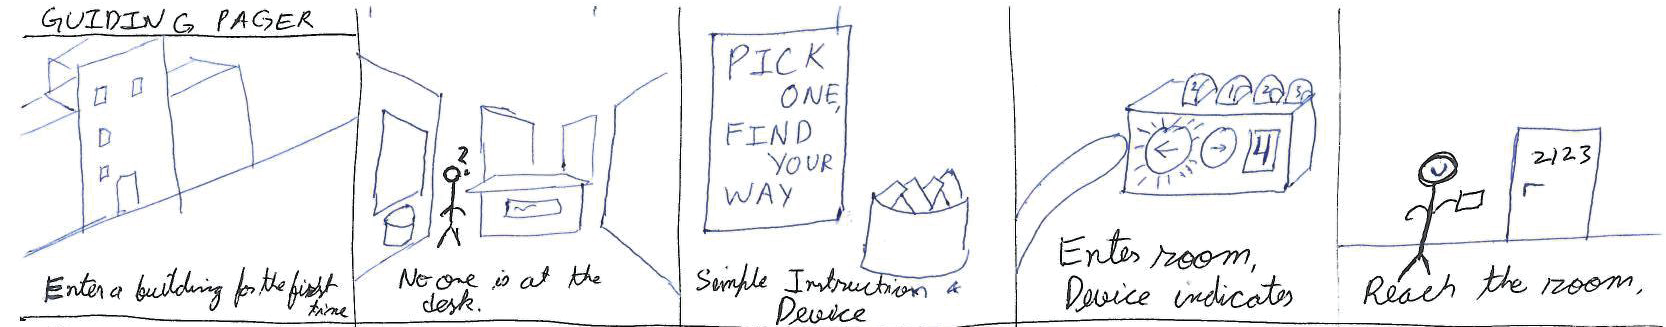 GUIDING PAGER
Enter a building for the first
time
?
No one is at the
desk.
PICK
ONE,
FIND
YOUR
WAY
Simple Instruction &
Device
2 1 2 3
← → 4
Enter room,
Device indicates
2123
Reach the room.